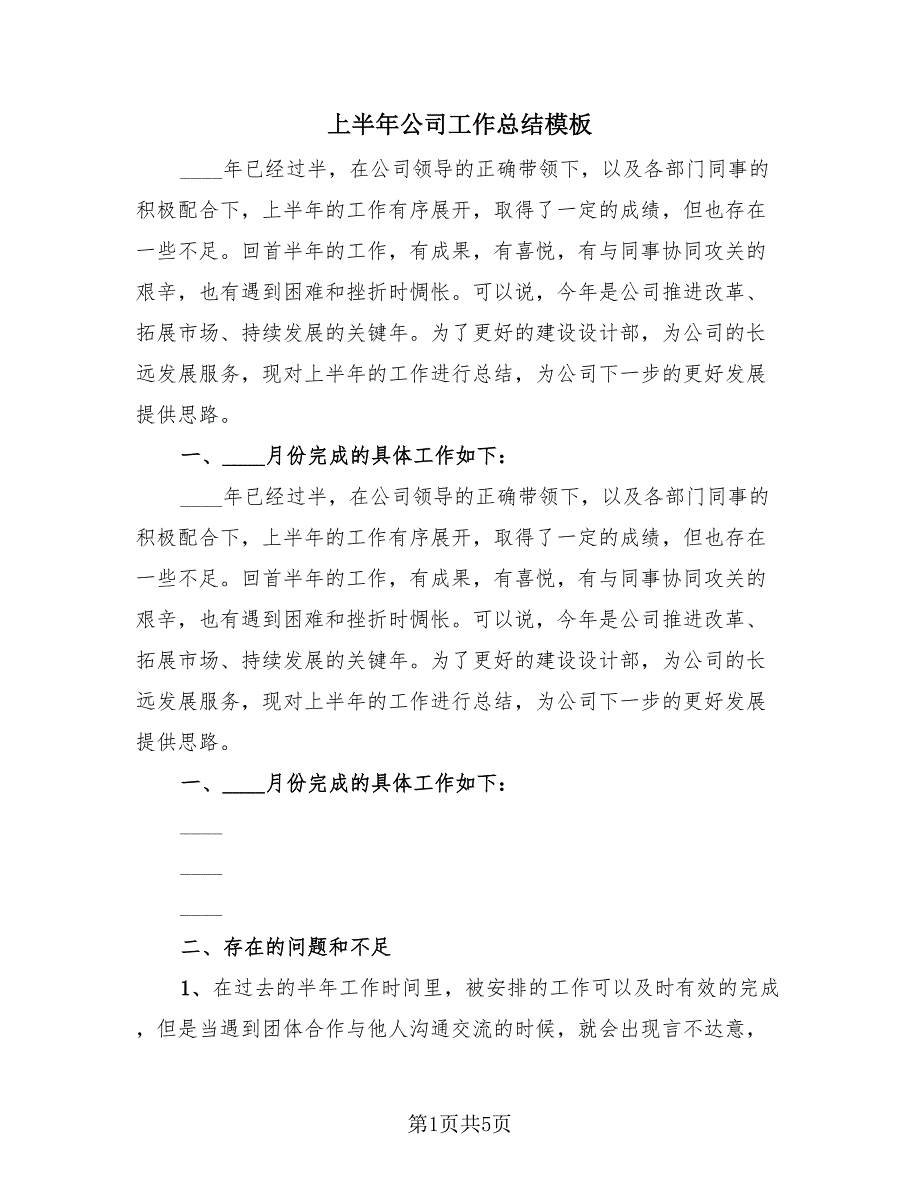 上半年公司工作总结模板
____年已经过半，在公司领导的正确带领下，以及各部门同事的
积极配合下，上半年的工作有序展开，取得了一定的成绩，但也存在
一些不足。回首半年的工作，有成果，有喜悦，有与同事协同攻关的
艰辛，也有遇到困难和挫折时惆怅。可以说，今年是公司推进改革、
拓展市场、持续发展的关键年。为了更好的建设设计部，为公司的长
远发展服务，现对上半年的工作进行总结，为公司下一步的更好发展
提供思路。
一、____月份完成的具体工作如下：
____年已经过半，在公司领导的正确带领下，以及各部门同事的
积极配合下，上半年的工作有序展开，取得了一定的成绩，但也存在
一些不足。回首半年的工作，有成果，有喜悦，有与同事协同攻关的
艰辛，也有遇到困难和挫折时惆怅。可以说，今年是公司推进改革、
拓展市场、持续发展的关键年。为了更好的建设设计部，为公司的长
远发展服务，现对上半年的工作进行总结，为公司下一步的更好发展
提供思路。
一、____月份完成的具体工作如下：
____
____
____
二、存在的问题和不足
1、在过去的半年工作时间里，被安排的工作可以及时有效的完成
，但是当遇到团体合作与他人沟通交流的时候，就会出现言不达意，
第1页共5页